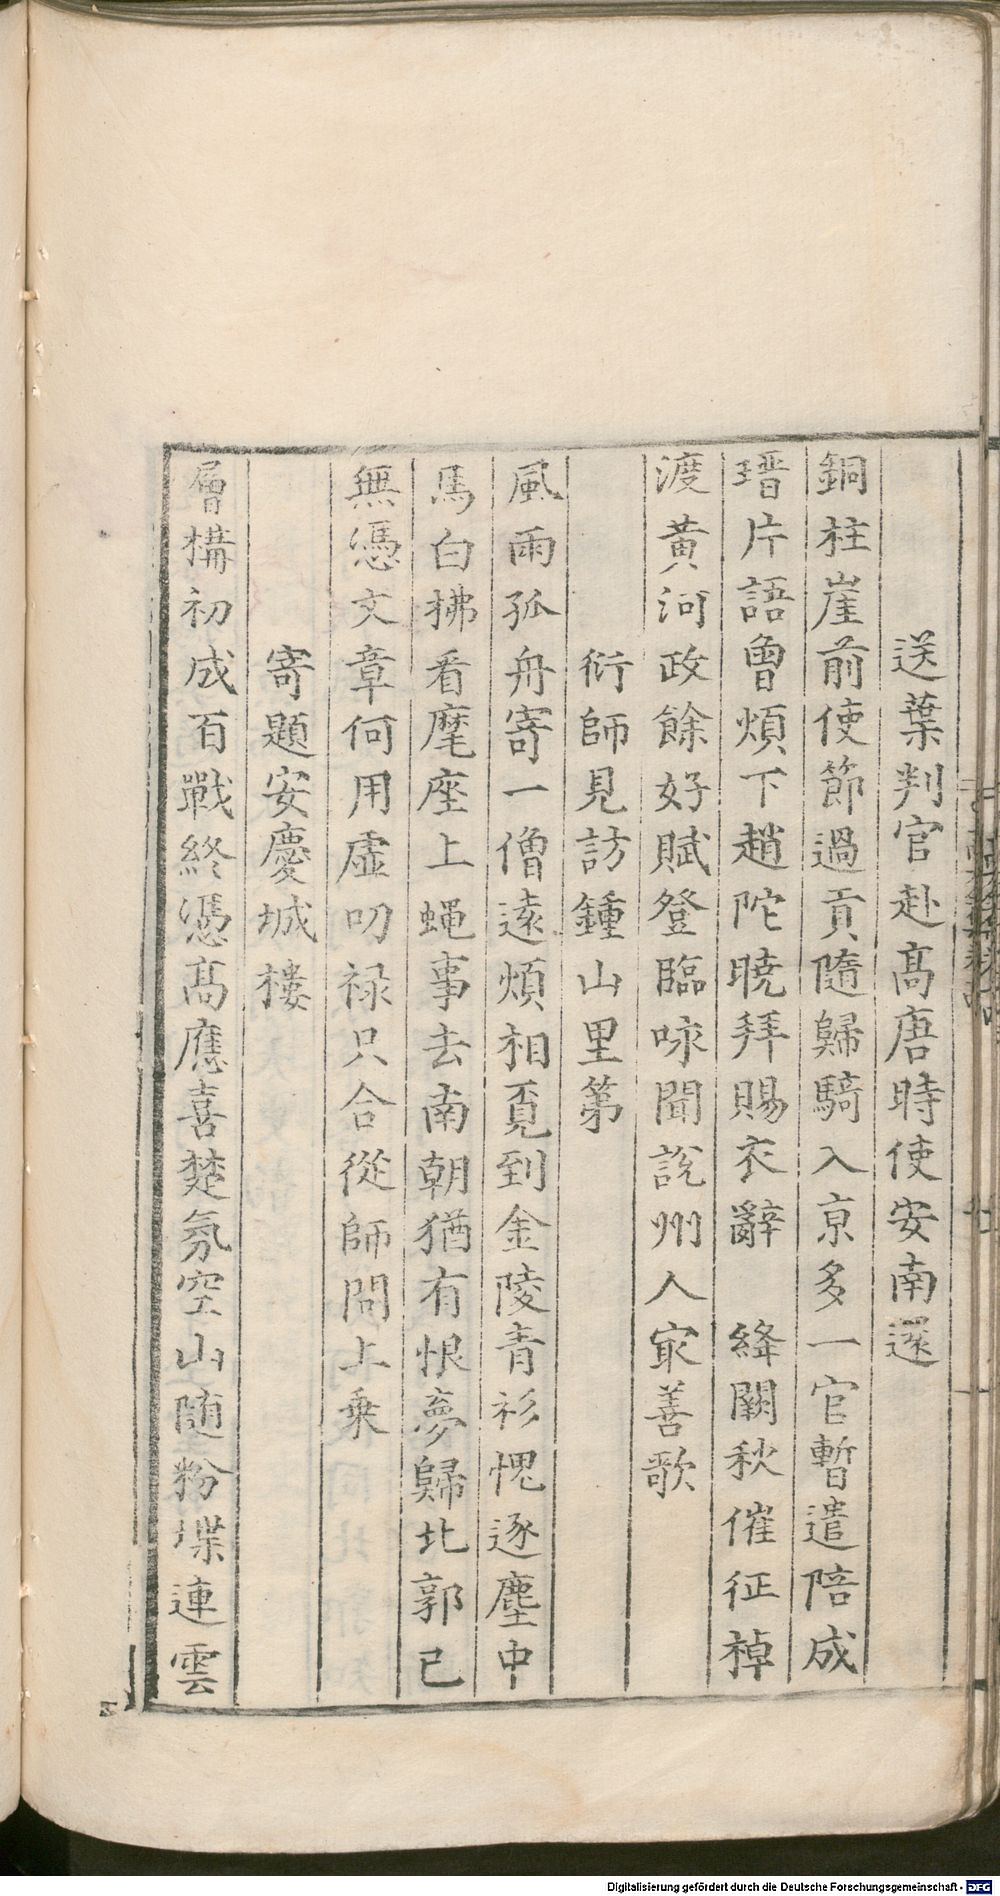 送葉判官赴髙唐時使安南還
銅柱崖前使節過貢隨歸騎入京多一官暫遣陪成
瑨片語曾煩下趙陀曉拜賜衣辭絳闕秋催征棹
渡黃河政餘好賦登臨咏聞說州人㝡善歌
衍師見訪鍾山里第
風雨孤舟寄一僧遠煩相覔到金陵青衫愧逐塵中
馬白拂看麾座上蝿事去南朝猶有恨夢歸北郭已
無憑文章何用虛叨祿只合從師問上乗
寄題安慶城樓
層構初成百戰終憑髙應喜楚氛空山随粉堞連雲
Digitalisierung gefördert durch die Deutsche Forschungsgemeinschaft - DFG